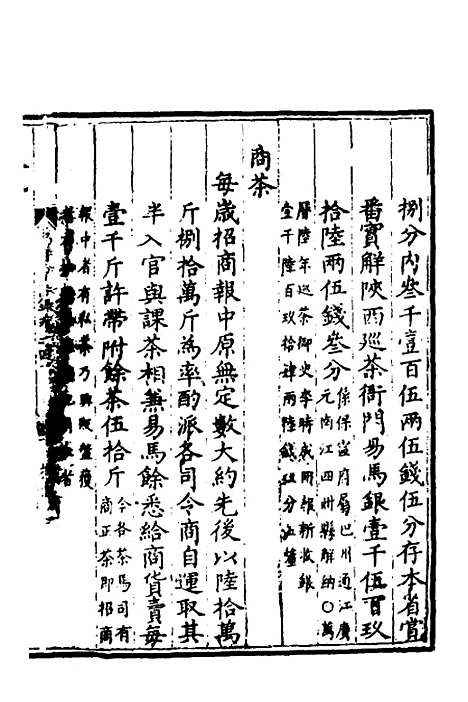 捌分內叄千壹百伍兩伍錢伍分存本省賞
番實解陝西巡茶衙門易馬銀壹千伍百玖
拾陸兩伍錢叄分係保寧府屬巴州通江廣
元南江四州縣解納〇萬
曆陸年巡茶御史李時成冊報新收銀
壹千陸百玖拾肆兩陸錢玖分五釐
商茶
每歲招商報中原無定數大約先後以陸拾萬
斤捌拾萬斤為率酌派各司令商自運取其
半入官與課茶相兼易馬餘悉給商貨賣每
壹千斤許帶附餘茶伍拾斤今各茶馬司有
商正茶即招商
報中者有私茶乃興販盤獲